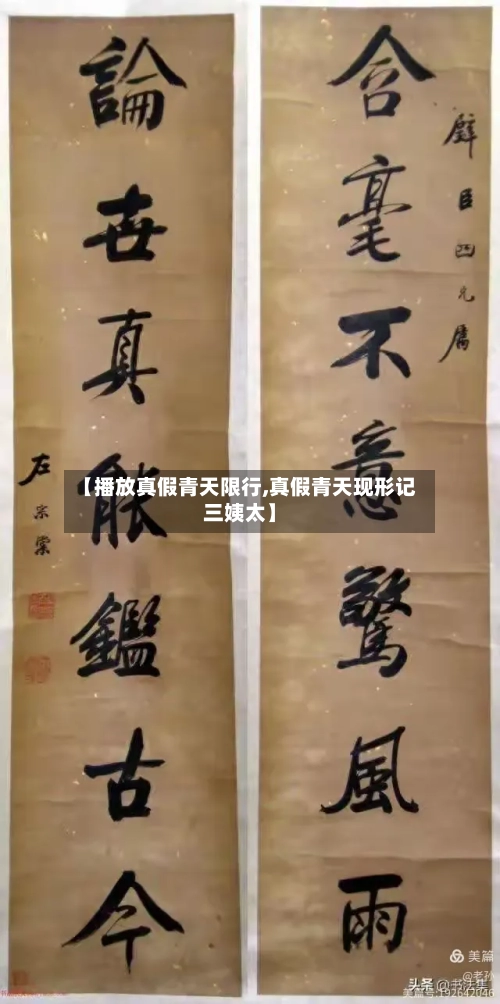 含毫不意驚風雨
論世真能鑑古今
左宗棠
【播放真假青天限行,真假青天现形记
三姨太】
美篇
@老孙
头条@书法集